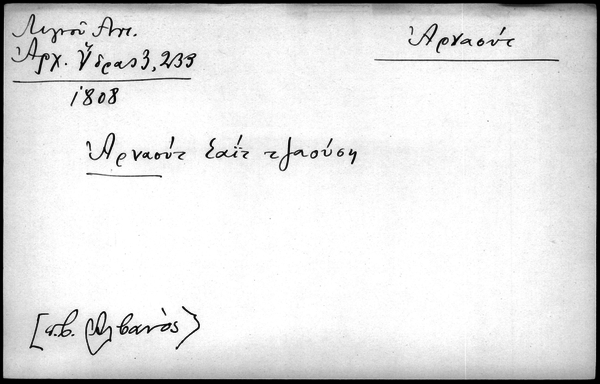 Λιγνοῦ Ἀντ.
Ἀρχ. Ὕδρας 3, 239
1808
Ἀρναούτ
Ἀρναούτ Σαΐτ τζαούση
[π.β. Ἀλβανὸς]